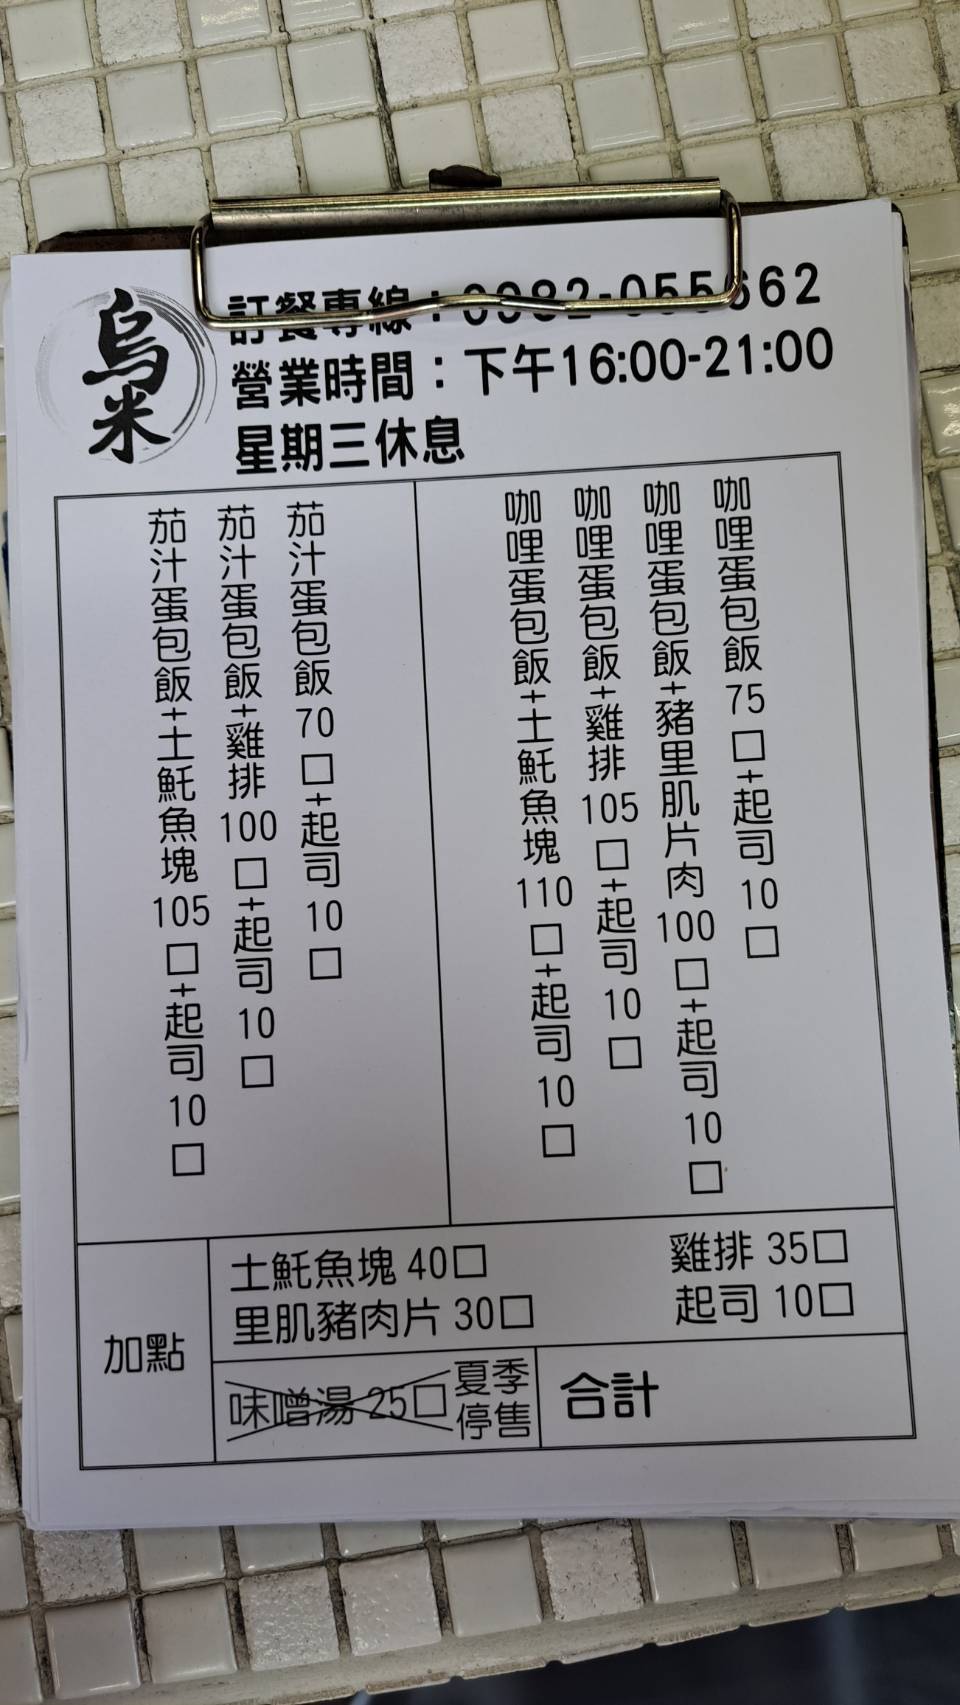 烏米
訂餐專線：0982-055662
營業時間：下午16:00-21:00
星期三休息
咖哩蛋包飯 75 □+起司 10 □
咖哩蛋包飯+豬里肌片肉 100 □+起司 10 □
咖哩蛋包飯+雞排 105 □+起司 10 □
咖哩蛋包飯+土魠魚塊 110 □+起司 10 □
茄汁蛋包飯 70 □+起司 10 □
茄汁蛋包飯+雞排 100 □+起司 10 □
茄汁蛋包飯+土魠魚塊 105 □+起司 10 □
加點
土魠魚塊 40□ 雞排 35□
里肌豬肉片 30□ 起司 10□
味噌湯 25□
夏季
停售
合計